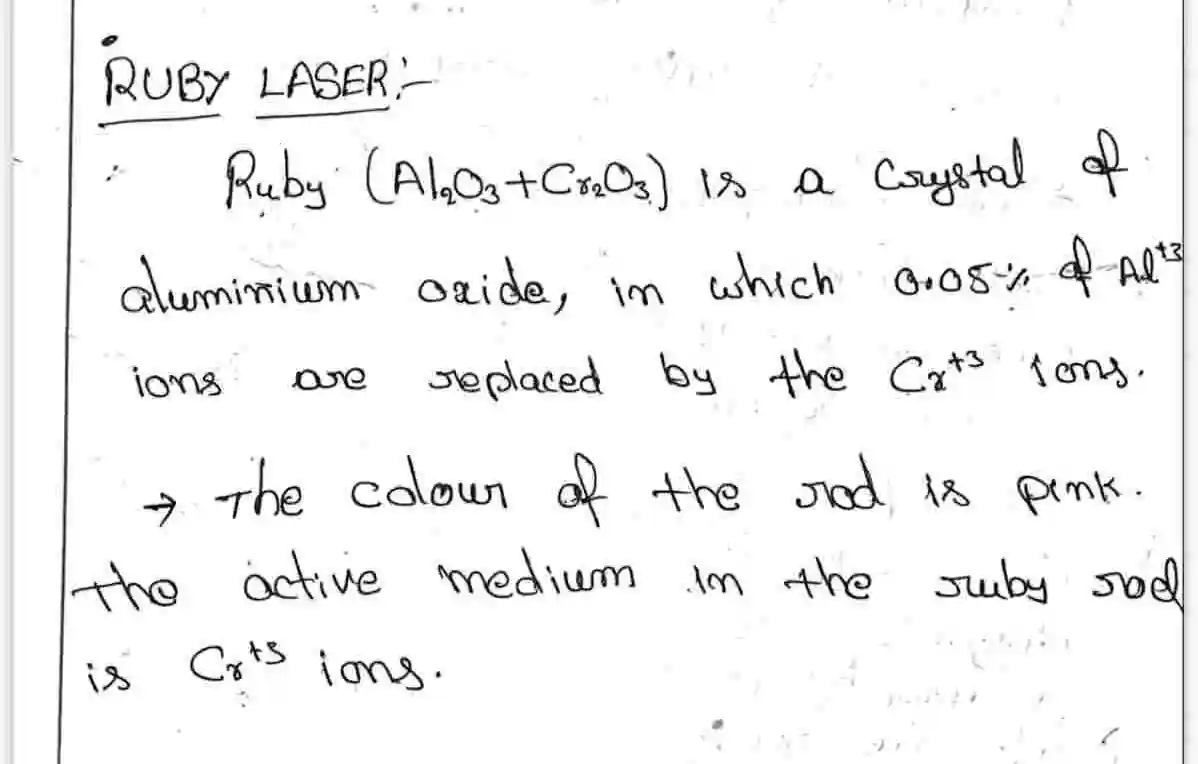 RUBY LASER:-
Ruby (Al₂O₃+Cr₂O₃) is a Crystal of
aluminium oxide, in which 0.05% of Al⁺³
ions are replaced by the Cr⁺³ ions.
→ The colour of the rod is pink.
The active medium in the ruby rod
is Cr⁺³ ions.